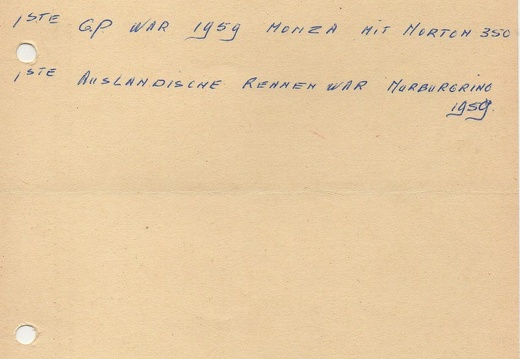 1STE GP WAR 1959 MONZA MIT NORTON 350
1STE AUSLANDISCHE RENNEN WAR NURBURGRING
1959.